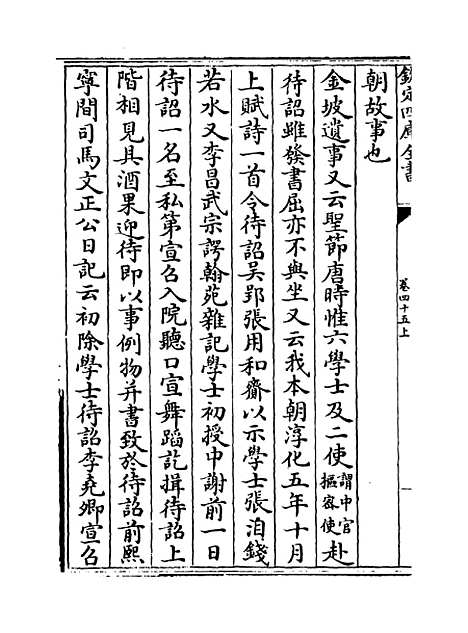 欽定四庫全書
卷四十五上
朝故事也
金坡遺事又云聖節唐時惟六學士及二使謂中官樞密使赴
待詔雖發書屈亦不與坐又云我本朝淳化五年十月
上賦詩一首令待詔吴郢張用和齎以示學士張洎錢
若水又李昌武宗諤翰苑雜記學士初授中謝前一日
待詔一名至私第宣召入院聽口宣舞蹈訖揖待詔上
階相見具酒果迎待即以事例物并書致於待詔前熙
寧間司馬文正公日記云初除學士待詔李堯卿宣召